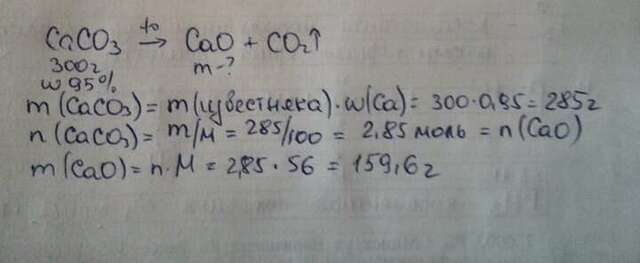 CaCO₃ t° → CaO + CO₂↑
300г m-?
w 95%
m(CaCO₃) = m(известняка)·w(Ca) = 300·0,95 = 285г
n(CaCO₃) = m/M = 285/100 = 2,85 моль = n(CaO)
m(CaO) = n·M = 2,85·56 = 159,6г